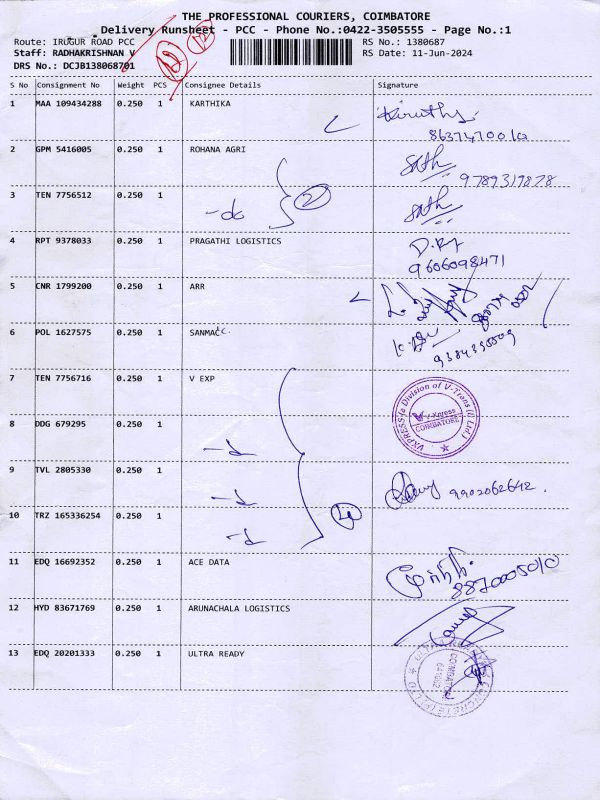 THE PROFESSIONAL COURIERS, COIMBATORE
Delivery Runsheet - PCC - Phone No.:0422-3505555 - Page No.:1
Route: IRUGUR ROAD PCC RS No.: 1380687
Staff: RADHAKRISHNAN V RS Date: 11-Jun-2024
DRS No.: DCJB138068701
S No Consignment No Weight PCS Consignee Details Signature
1 MAA 109434288 0.250 1 KARTHIKA
2 GPM 5416005 0.250 1 ROHANA AGRI Sath
9789319878
3 TEN 7756512 0.250 1 -do 2 Sath
4 RPT 9378033 0.250 1 PRAGATHI LOGISTICS
9606098471
5 CNR 1799200 0.250 1 ARR
6 POL 1627575 0.250 1 SANMAC
7 TEN 7756716 0.250 1 V EXP
VXPRESS (a Division of V-Trans (I) Ltd.)
V-Xpress
COIMBATORE
8 DDG 679295 0.250 1 -d
9 TVL 2805330 0.250 1 -d 9902062642.
10 TRZ 165336254 0.250 1 -d 4
11 EDQ 16692352 0.250 1 ACE DATA
8870005010
12 HYD 83671769 0.250 1 ARUNACHALA LOGISTICS
13 EDQ 20201333 0.250 1 ULTRA READY